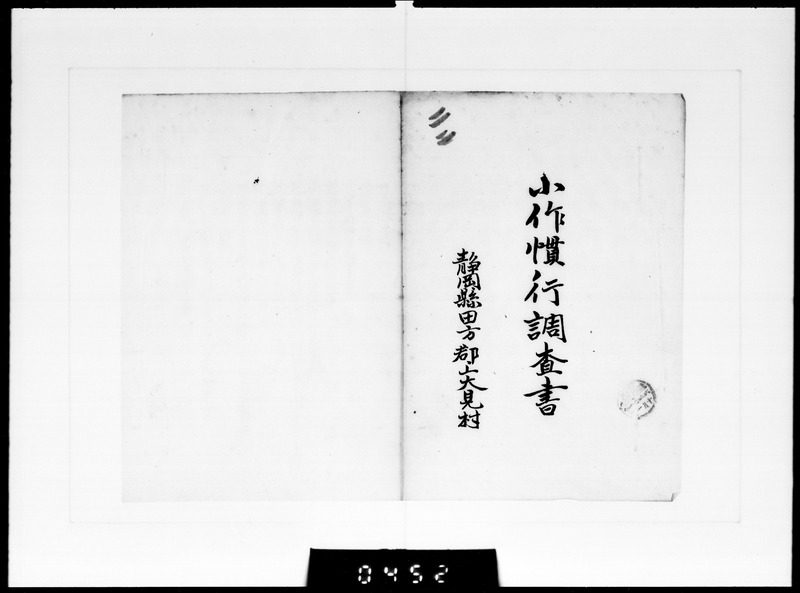 小作慣行調査書
静岡縣田方郡上大見村
0452